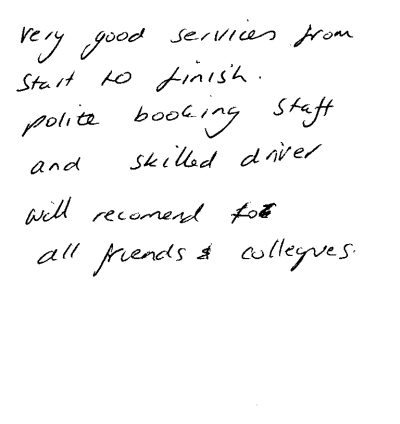 very good services from
start to finish.
polite booking staff
and skilled driver
will recomend to
all friends & collegues.